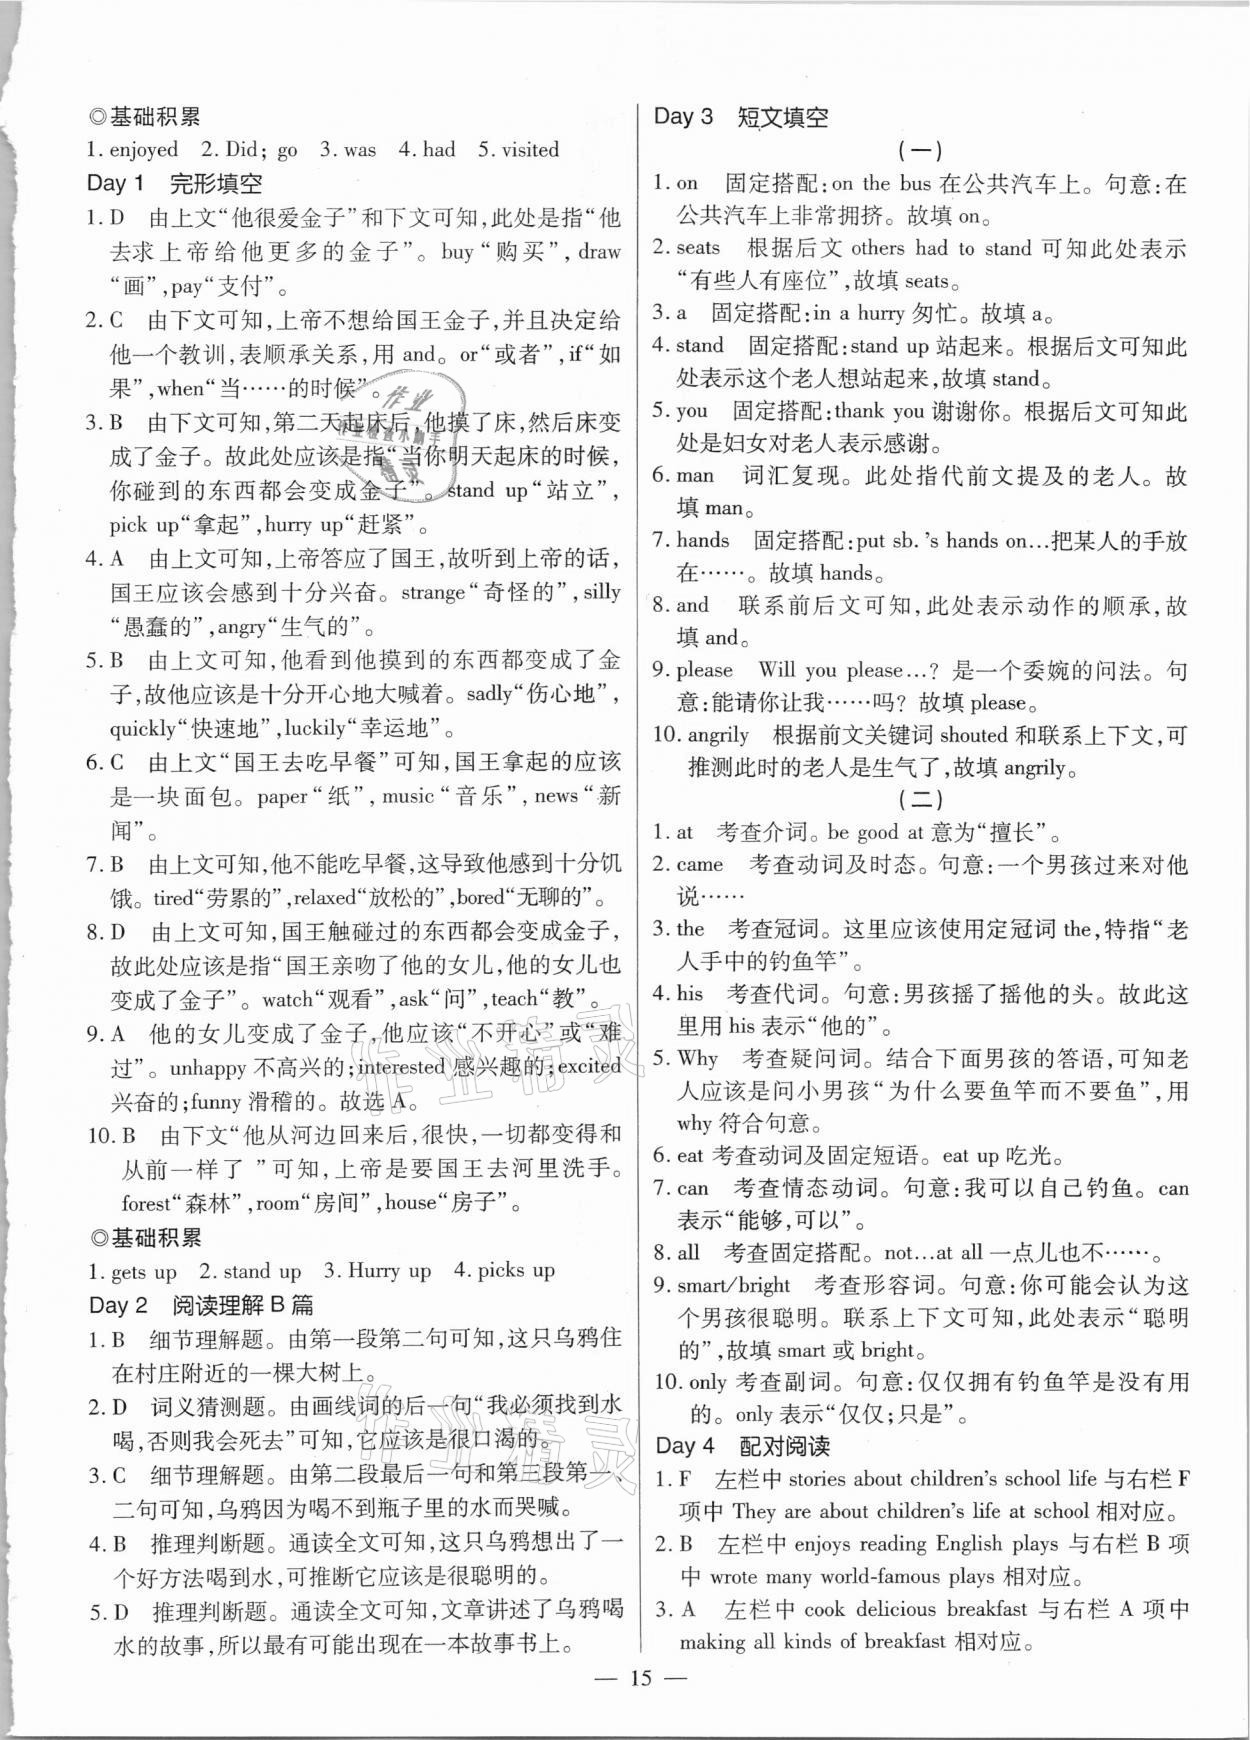 ◎基础积累
1. enjoyed 2. Did; go 3. was 4. had 5. visited
Day 1 完形填空
1. D 由上文“他很爱金子”和下文可知,此处是指“他
去求上帝给他更多的金子”。buy“购买”,draw
“画”,pay“支付”。
2. C 由下文可知,上帝不想给国王金子,并且决定给
他一个教训,表顺承关系,用 and。or“或者”,if“如
果”,when“当……的时候”。
3. B 由下文可知,第二天起床后,他摸了床,然后床变
成了金子。故此处应该是指“当你明天起床的时候,
你碰到的东西都会变成金子”。stand up“站立”,
pick up“拿起”,hurry up“赶紧”。
4. A 由上文可知,上帝答应了国王,故听到上帝的话,
国王应该会感到十分兴奋。strange“奇怪的”,silly
“愚蠢的”,angry“生气的”。
5. B 由上文可知,他看到他摸到的东西都变成了金
子,故他应该是十分开心地大喊着。sadly“伤心地”,
quickly“快速地”,luckily“幸运地”。
6. C 由上文“国王去吃早餐”可知,国王拿起的应该
是一块面包。paper“纸”,music“音乐”,news“新
闻”。
7. B 由上文可知,他不能吃早餐,这导致他感到十分饥
饿。tired“劳累的”,relaxed“放松的”,bored“无聊的”。
8. D 由上文可知,国王触碰过的东西都会变成金子,
故此处应该是指“国王亲吻了他的女儿,他的女儿也
变成了金子”。watch“观看”,ask“问”,teach“教”。
9. A 他的女儿变成了金子,他应该“不开心”或“难
过”。unhappy 不高兴的;interested 感兴趣的;excited
兴奋的;funny 滑稽的。故选 A。
10. B 由下文“他从河边回来后,很快,一切都变得和
从前一样了 ”可知,上帝是要国王去河里洗手。
forest“森林”,room“房间”,house“房子”。
◎基础积累
1. gets up 2. stand up 3. Hurry up 4. picks up
Day 2 阅读理解 B 篇
1. B 细节理解题。由第一段第二句可知,这只乌鸦住
在村庄附近的一棵大树上。
2. D 词义猜测题。由画线词的后一句“我必须找到水
喝,否则我会死去”可知,它应该是很口渴的。
3. C 细节理解题。由第二段最后一句和第三段第一、
二句可知,乌鸦因为喝不到瓶子里的水而哭喊。
4. B 推理判断题。通读全文可知,乌鸦想出了一
个好方法喝到水,可推断它应该是很聪明的。
5. D 推理判断题。通读全文可知,文章讲述了乌鸦喝
水的故事,所以最有可能出现在一本故事书上。
Day 3 短文填空
(一)
1. on 固定搭配:on the bus 在公共汽车上。句意:在
公共汽车上非常拥挤。故填 on。
2. seats 根据后文 others had to stand 可知此处表示
“有些人有座位”,故填 seats。
3. a 固定搭配:in a hurry 匆忙。故填 a。
4. stand 固定搭配:stand up 站起来。根据后文可知此
处表示这个老人想站起来,故填 stand。
5. you 固定搭配:thank you 谢谢你。根据后文可知此
处是妇女对老人表示感谢。
6. man 词汇复现。此处指代前文提及的老人。故
填 man。
7. hands 固定搭配:put sb. 's hands on…把某人的手放
在……。故填 hands。
8. and 联系前后文可知,此处表示动作的顺承,故
填 and。
9. please Will you please…? 是一个委婉的问法。句
意:能请你让我……吗? 故填 please。
10. angrily 根据前文关键词 shouted 和联系上下文,可
推测此时的老人是生气了,故填 angrily。
(二)
1. at 考查介词。be good at 意为“擅长”。
2. came 考查动词及时态。句意:一个男孩过来对他
说……
3. the 考查冠词。这里应该使用定冠词 the,特指“老
人手中的钓鱼竿”。
4. his 考查代词。句意:男孩摇了摇他的头。故此这
里用 his 表示“他的”。
5. Why 考查疑问词。结合下面男孩的答语,可知老
人应该是问小男孩“为什么要鱼竿而不要鱼”,用
why 符合句意。
6. eat 考查动词及固定短语。eat up 吃光。
7. can 考查情态动词。句意:我可以自己钓鱼。can
表示“能够,可以”。
8. all 考查固定搭配。not…at all 一点儿也不……。
9. smart/bright 考查形容词。句意:你可能会认为这
个男孩很聪明。联系上下文可知,此处表示“聪明
的”,故填 smart 或 bright。
10. only 考查副词。句意:仅仅拥有钓鱼竿是没有用
的。only 表示“仅仅;只是”。
Day 4 配对阅读
1. F 左栏中 stories about children's school life 与右栏 F
项中 They are about children's life at school 相对应。
2. B 左栏中 enjoys reading English plays 与右栏 B 项
中 wrote many world-famous plays 相对应。
3. A 左栏中 cook delicious breakfast 与右栏 A 项中
making all kinds of breakfast 相对应。
— 15 —
作业
作业检查小助手
精灵
作业精灵
作业精灵